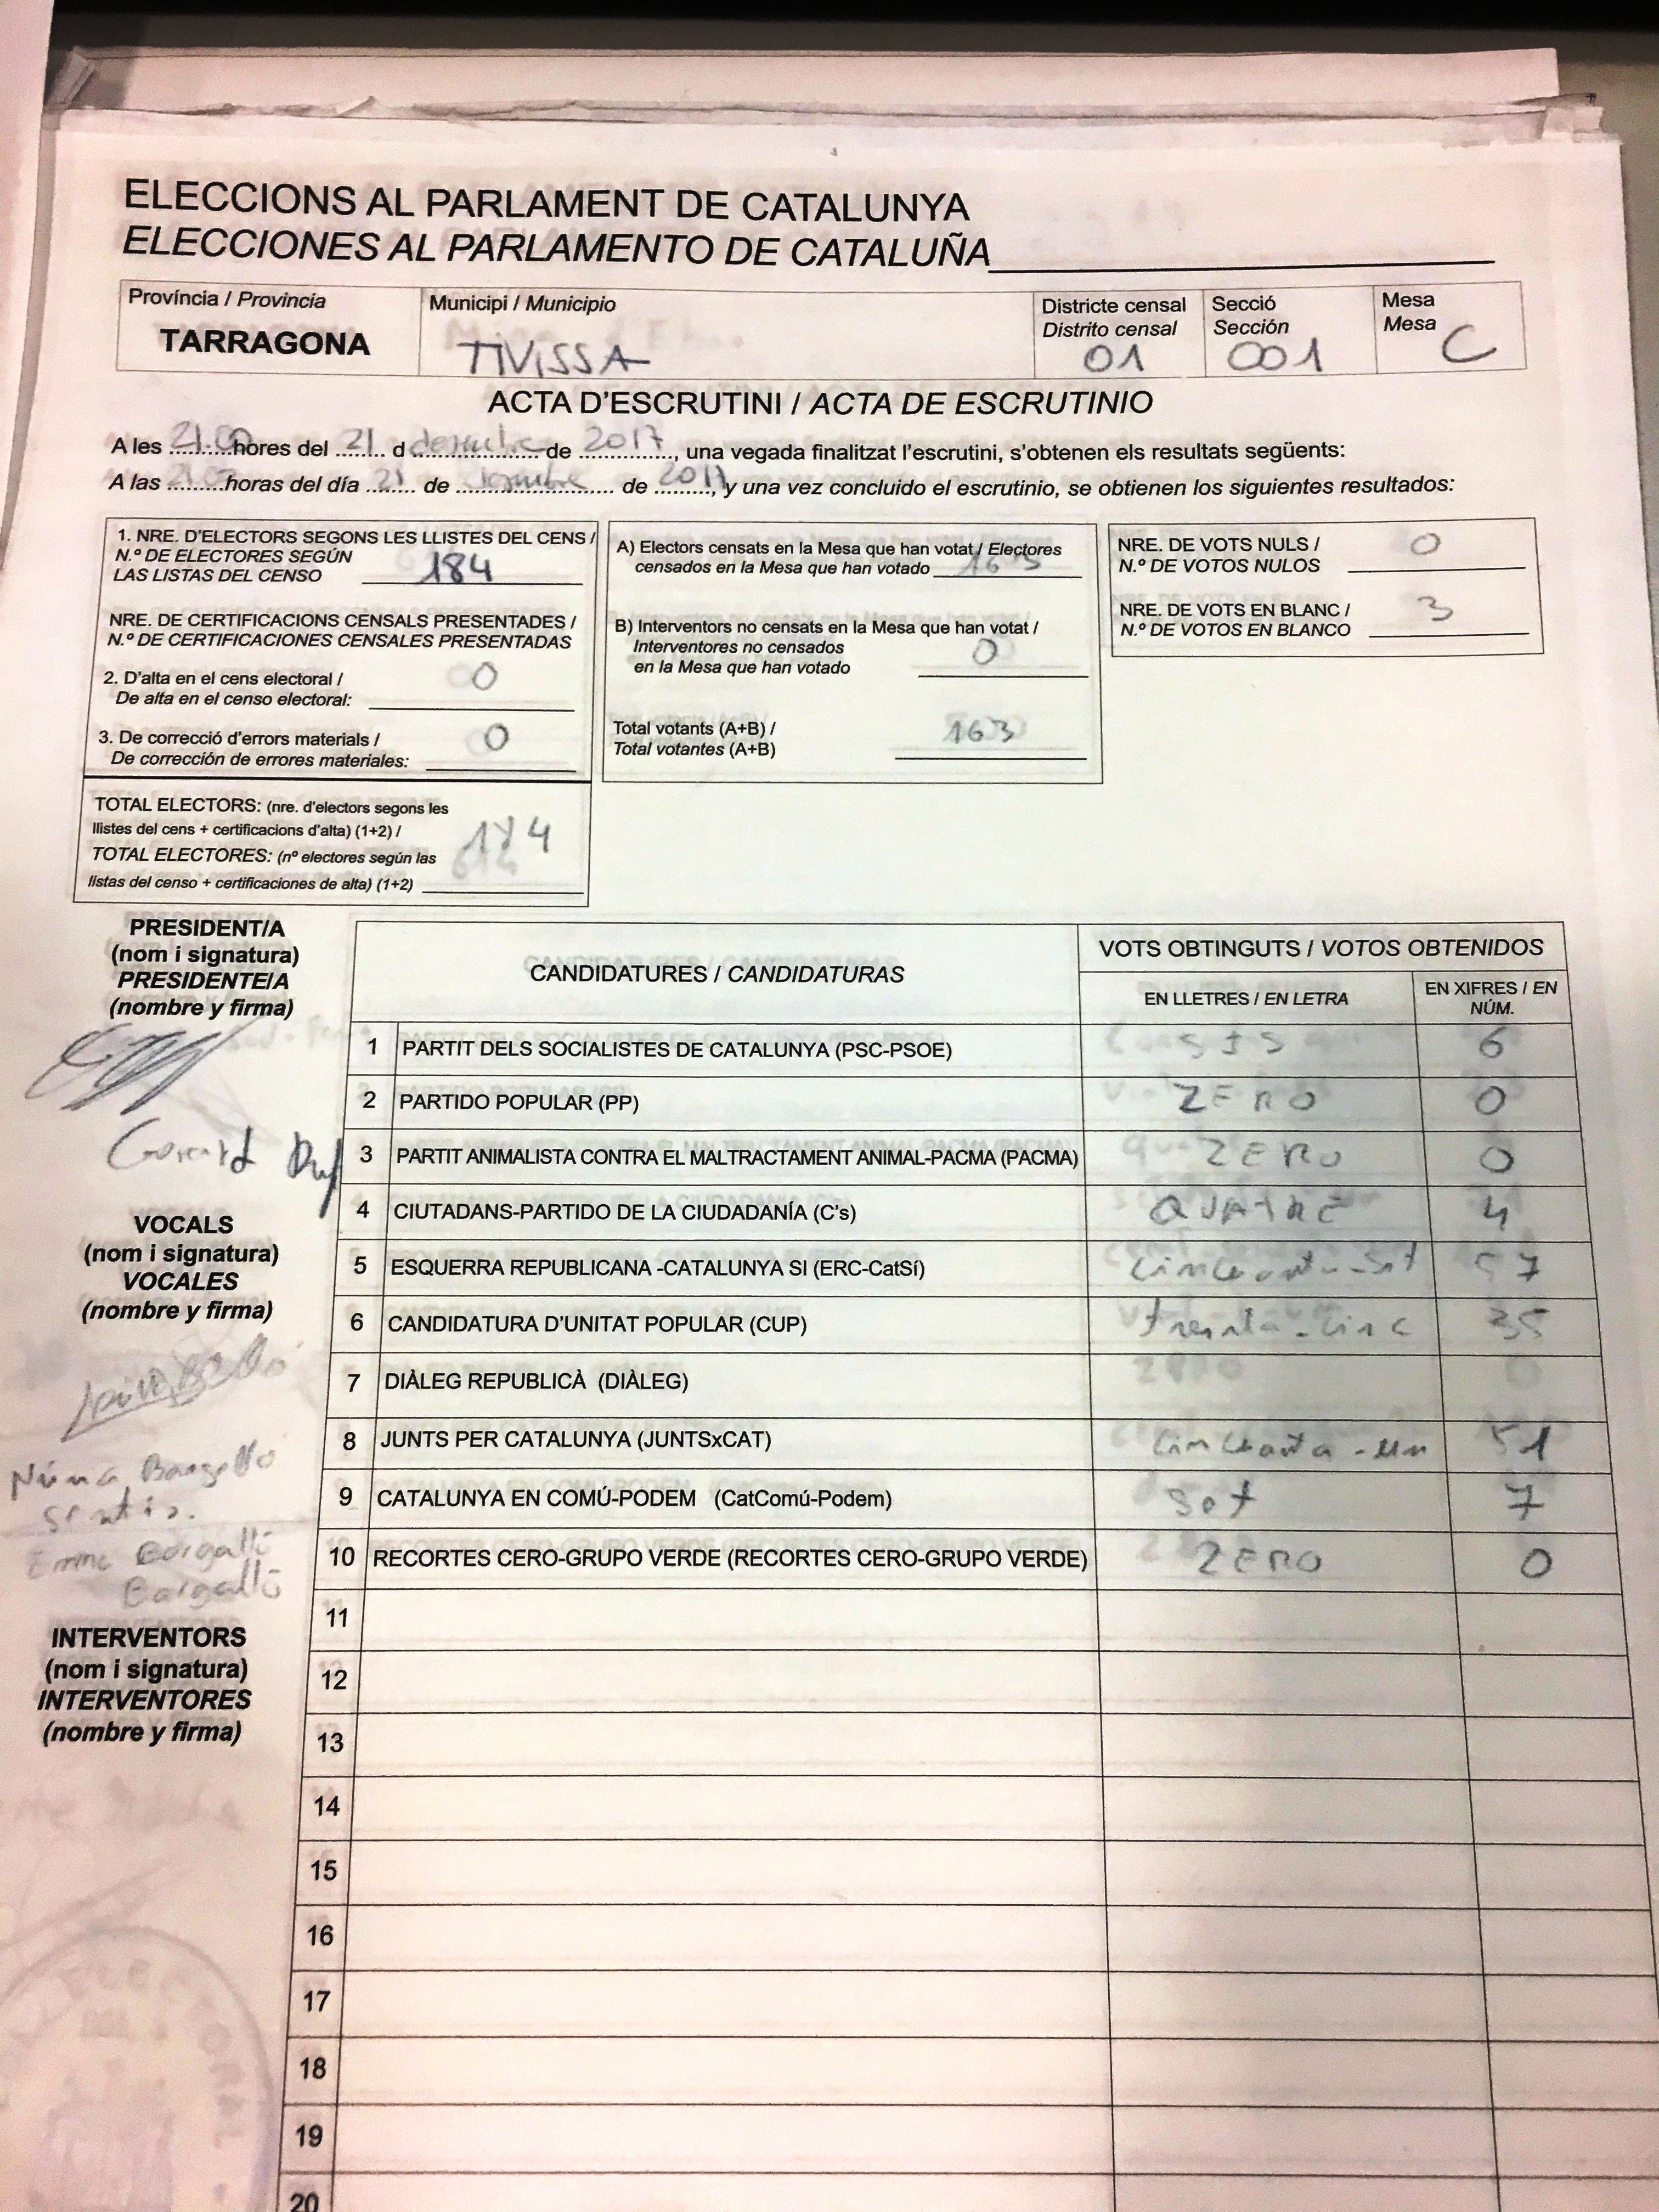 ELECCIONS AL PARLAMENT DE CATALUNYA
ELECCIONES AL PARLAMENTO DE CATALUÑA
Província / Provincia
TARRAGONA
Municipi / Municipio
TIVISSA
Districte censal
Distrito censal
01
Secció
Sección
001
Mesa
Mesa
C
ACTA D'ESCRUTINI / ACTA DE ESCRUTINIO
A les 21:00 hores del 21 d desembre de 2017, una vegada finalitzat l'escrutini, s'obtenen els resultats següents:
A las horas del día 21 de de 2017, y una vez concluido el escrutinio, se obtienen los siguientes resultados:
1. NRE. D'ELECTORS SEGONS LES LLISTES DEL CENS /
N.º DE ELECTORES SEGÚN
LAS LISTAS DEL CENSO 184
NRE. DE CERTIFICACIONS CENSALS PRESENTADES /
N.º DE CERTIFICACIONES CENSALES PRESENTADAS
2. D'alta en el cens electoral / 0
De alta en el censo electoral:
3. De correcció d'errors materials / 0
De corrección de errores materiales:
TOTAL ELECTORS: (nre. d'electors segons les
llistes del cens + certificacions d'alta) (1+2) / 184
TOTAL ELECTORES: (nº electores según las
listas del censo + certificaciones de alta) (1+2)
A) Electors censats en la Mesa que han votat / Electores
censados en la Mesa que han votado 163
B) Interventors no censats en la Mesa que han votat /
Interventores no censados 0
en la Mesa que han votado
Total votants (A+B) / 163
Total votantes (A+B)
NRE. DE VOTS NULS / 0
N.º DE VOTOS NULOS
NRE. DE VOTS EN BLANC / 3
N.º DE VOTOS EN BLANCO
PRESIDENT/A
(nom i signatura)
PRESIDENTE/A
(nombre y firma)
Gerard
VOCALS
(nom i signatura)
VOCALES
(nombre y firma)
Núria Bargalló
Sentís.
Emma Bargalló
Bargalló
INTERVENTORS
(nom i signatura)
INTERVENTORES
(nombre y firma)
CANDIDATURES / CANDIDATURAS
VOTS OBTINGUTS / VOTOS OBTENIDOS
EN LLETRES / EN LETRA
EN XIFRES / EN
NÚM.
1 PARTIT DELS SOCIALISTES DE CATALUNYA (PSC-PSOE) SIS 6
2 PARTIDO POPULAR (PP) ZERO 0
3 PARTIT ANIMALISTA CONTRA EL MALTRACTAMENT ANIMAL-PACMA (PACMA) ZERO 0
4 CIUTADANS-PARTIDO DE LA CIUDADANÍA (C's) QUATRE 4
5 ESQUERRA REPUBLICANA -CATALUNYA SI (ERC-CatSí) Cinquanta-Set 57
6 CANDIDATURA D'UNITAT POPULAR (CUP) trenta-Cinc 35
7 DIÀLEG REPUBLICÀ (DIÀLEG)
8 JUNTS PER CATALUNYA (JUNTSxCAT) Cinquanta-un 51
9 CATALUNYA EN COMÚ-PODEM (CatComú-Podem) Set 7
10 RECORTES CERO-GRUPO VERDE (RECORTES CERO-GRUPO VERDE) ZERO 0
11
12
13
14
15
16
17
18
19
20